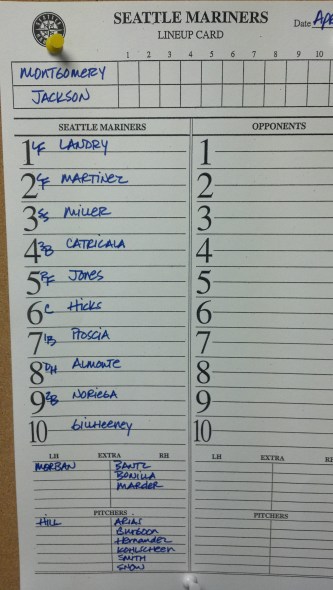 SEATTLE MARINERS
LINEUP CARD
Date Apr
1 2 3 4 5 6 7 8 9 10
MONTGOMERY
JACKSON
SEATTLE MARINERS OPPONENTS
1 LF LANDRY 1
2 CF MARTINEZ 2
3 SS MILLER 3
4 3B CATRICALA 4
5 RF JONES 5
6 C HICKS 6
7 1B PROSCIA 7
8 DH ALMONTE 8
9 2B NORIEGA 9
10 GILLHEENEY 10
LH EXTRA RH LH EXTRA RH
MORBAN BANTZ
BONILLA
MARDER
PITCHERS PITCHERS
HILL ARIAS
Hernandez
KOHLSCHEEN
SMITH
SNOW